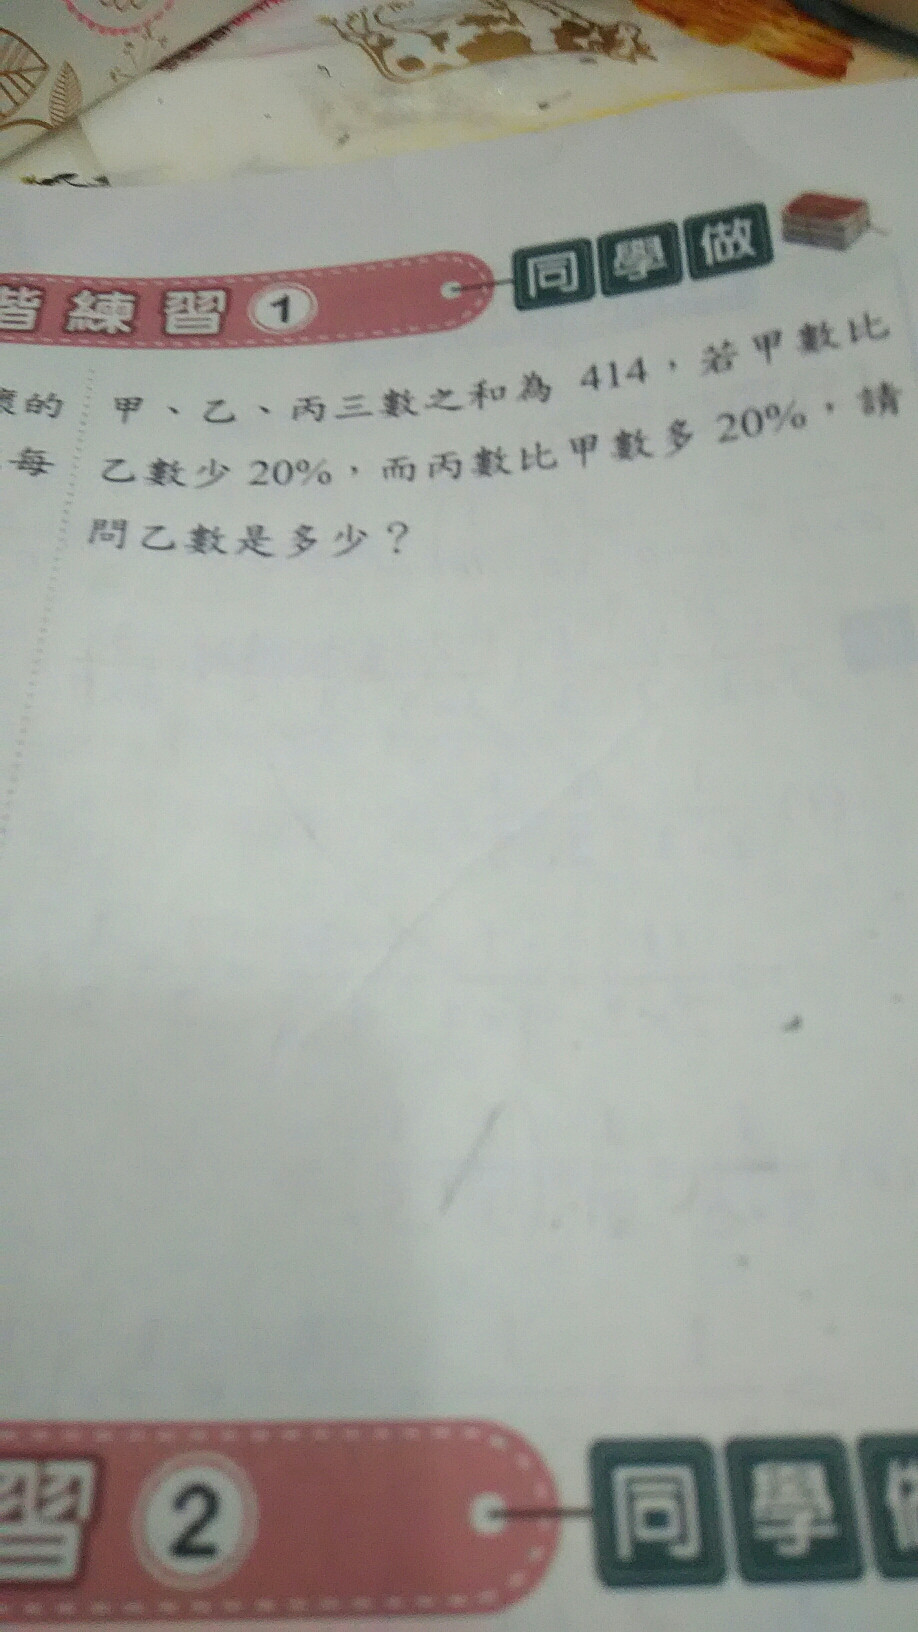 階練習 1 同學做
甲、乙、丙三數之和為 414,若甲數比
乙數少 20%,而丙數比甲數多 20%,請
問乙數是多少?
的
每
習 2 同學做